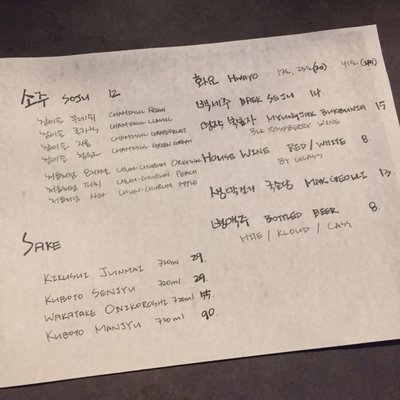 소주 SOJU 12
참이슬 후레쉬 CHAMISUL FRESH
참이슬 클래식 CHAMISUL CLASSIC
참이슬 자몽 CHAMISUL GRAPEFRUIT
참이슬 청포도 CHAMISUL GREEN GRAPE
처음처럼 오리지널 CHUM-CHURUM ORIGINAL
처음처럼 피치 CHUM-CHURUM PEACH
처음처럼 사과 CHUM-CHURUM APPLE
SAKE
KIKUSUI JUNMAI 720ml 29.
KUBOTO SENJYU 720ml 29.
WAKATAKE ONIKOROSHI 720ml 55.
KUBOTO MANJYU 720ml 90.
화요 HWAYO 17%, 25%(20) 41%
백세주 BAEK SEJU 14.
명작 복분자 MYUNGJAK BUKBUNJA 15
BLK RASPBERRY WINE
HOUSE WINE RED/WHITE 8.
BY GLASS
생막걸리 국순당 MAKGEOLLI 13.
병맥주 BOTTLED BEER 8.
HITE / KLOUD / CASS